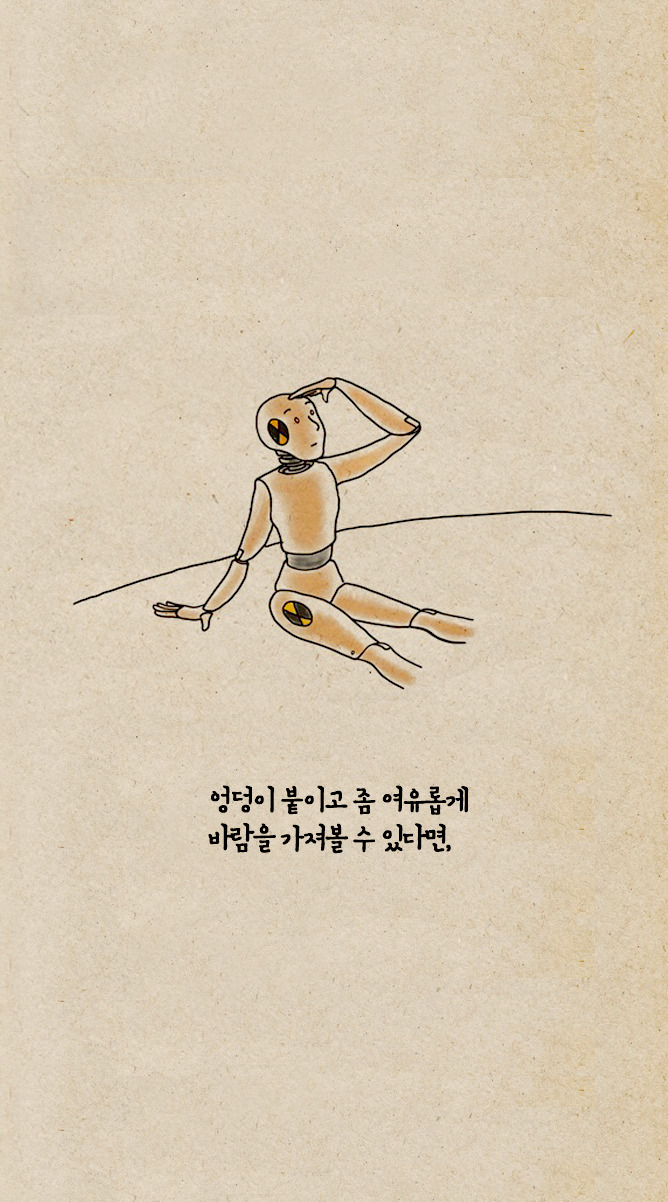 엉덩이 붙이고 좀 여유롭게
바람을 가져볼 수 있다면,